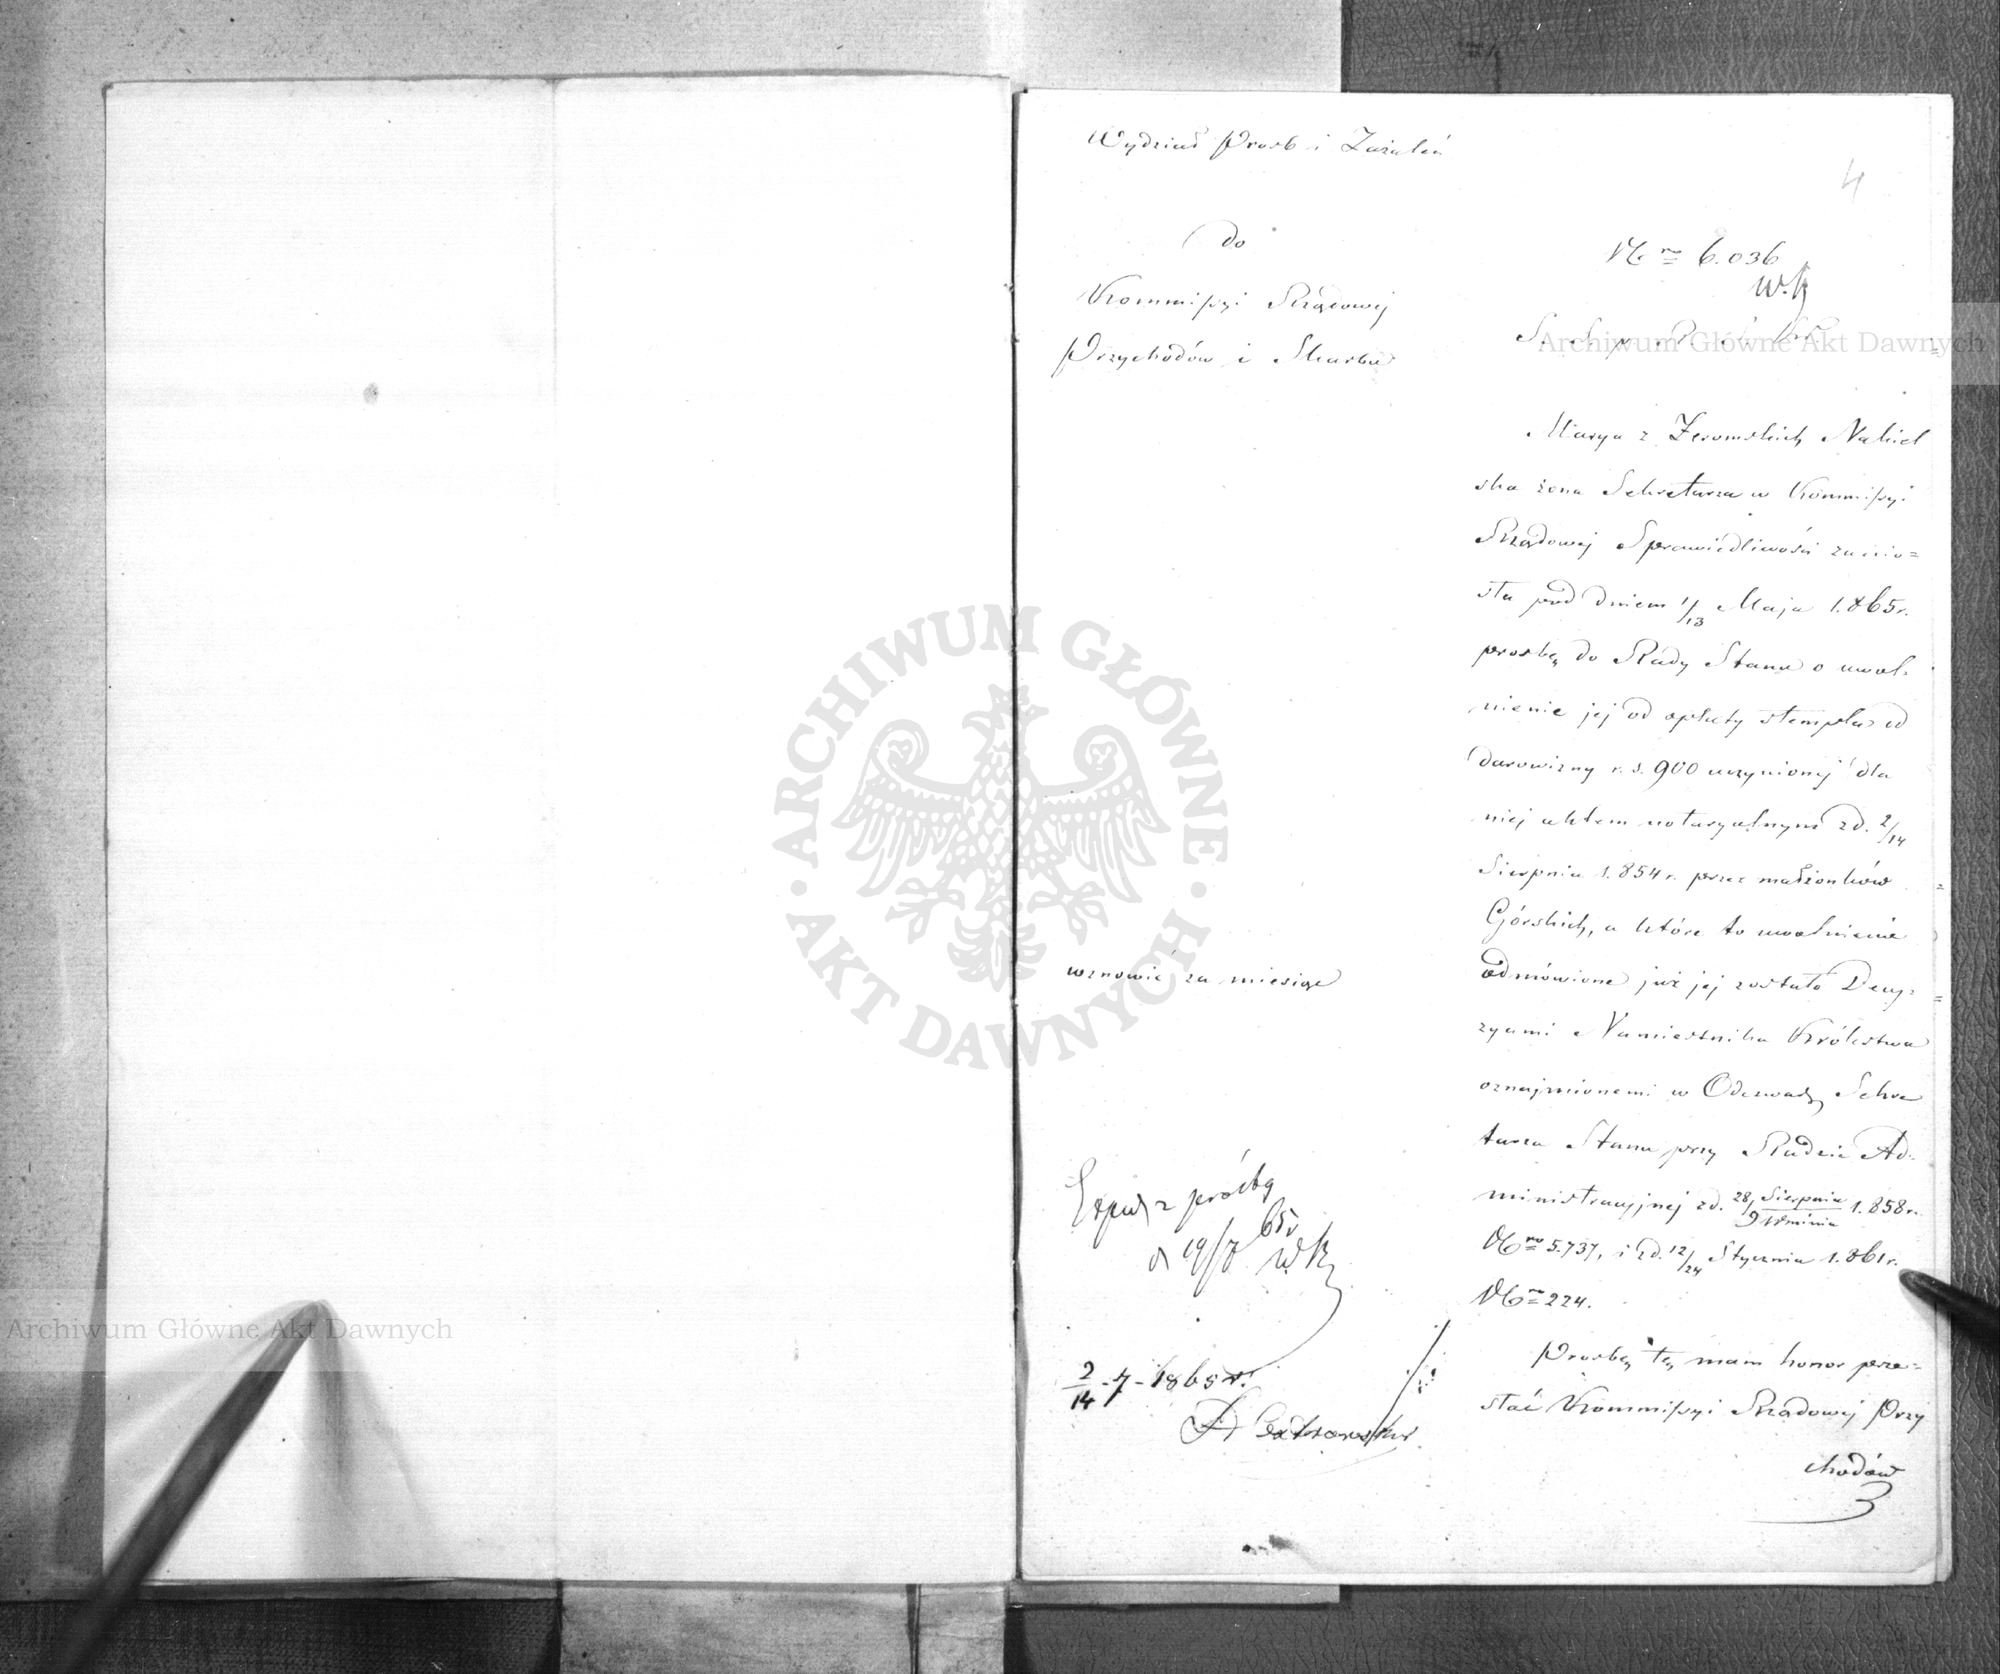 Wydział Prosb i Zażaleń
4
do
Kommissyi Rządowej
Przychodów i Skarbu
Nro 6.036
Archiwum Główne Akt Dawnych
Marya z Żeromskich Nakiel
ska żona Sekretarza w Kommissyi
Rządowej Sprawiedliwości zanio=
sła pod dniem 1/13 Maja 1.865 r.
prosbę do Rady Stanu o uwol=
nienie jej od opłaty stempla od
darowizny r. s. 900 uczynionej dla
niej aktem notaryalnym z d. 2/14
Sierpnia 1.854 r. przez małżonków
Górskich, a które to uwolnienie
odmówione już jej zostało Decy=
zyami Namiestnika Królestwa
oznajmionemi w Odezwach Sekre
tarza Stanu przy Radzie Ad=
ministracyjnej z d. 28 Sierpnia/9 Wrześnie 1.858 r.
Nro 5.737, i z d. 12/24 Stycznia 1.861 r.
Nro 224.
Prosbę tę mam honor prze=
słać Kommissyi Rządowej Przy
chodów
wznowić za miesiąc
z próśbą
d 19/7 65 r
2/14 - 7 - 1865 r.
ARCHIWUM GŁÓWNE AKT DAWNYCH
Archiwum Główne Akt Dawnych